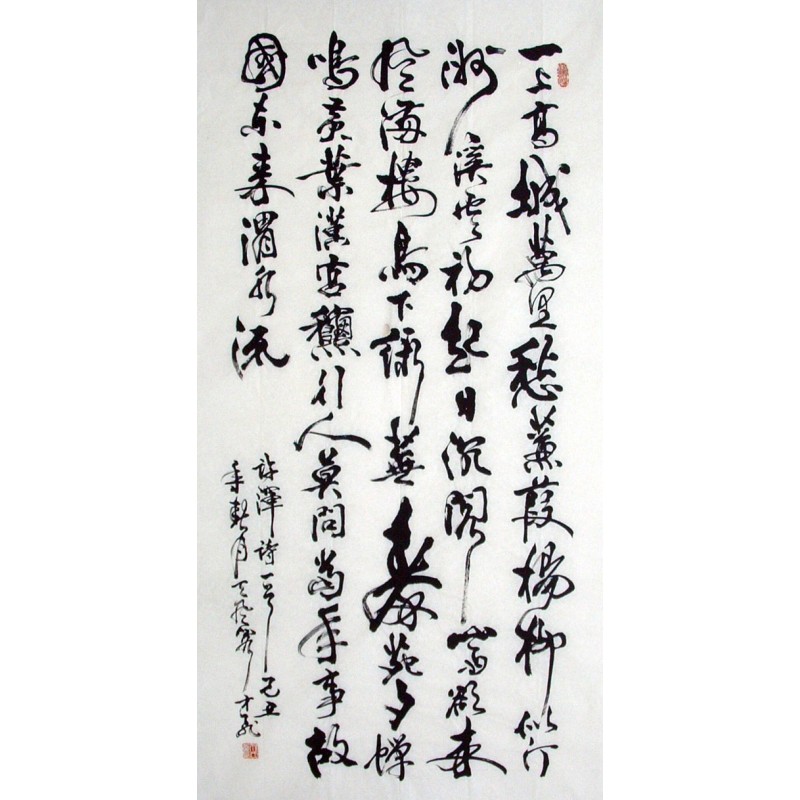 一上高城萬里愁蒹葭楊柳似汀
洲溪雲初起日沉閣山雨欲來
風滿樓鳥下綠蕪秦苑夕蟬
鳴黃葉漢宮龝行人莫問當年事故
國東來渭水流
許渾詩一首己丑
年月